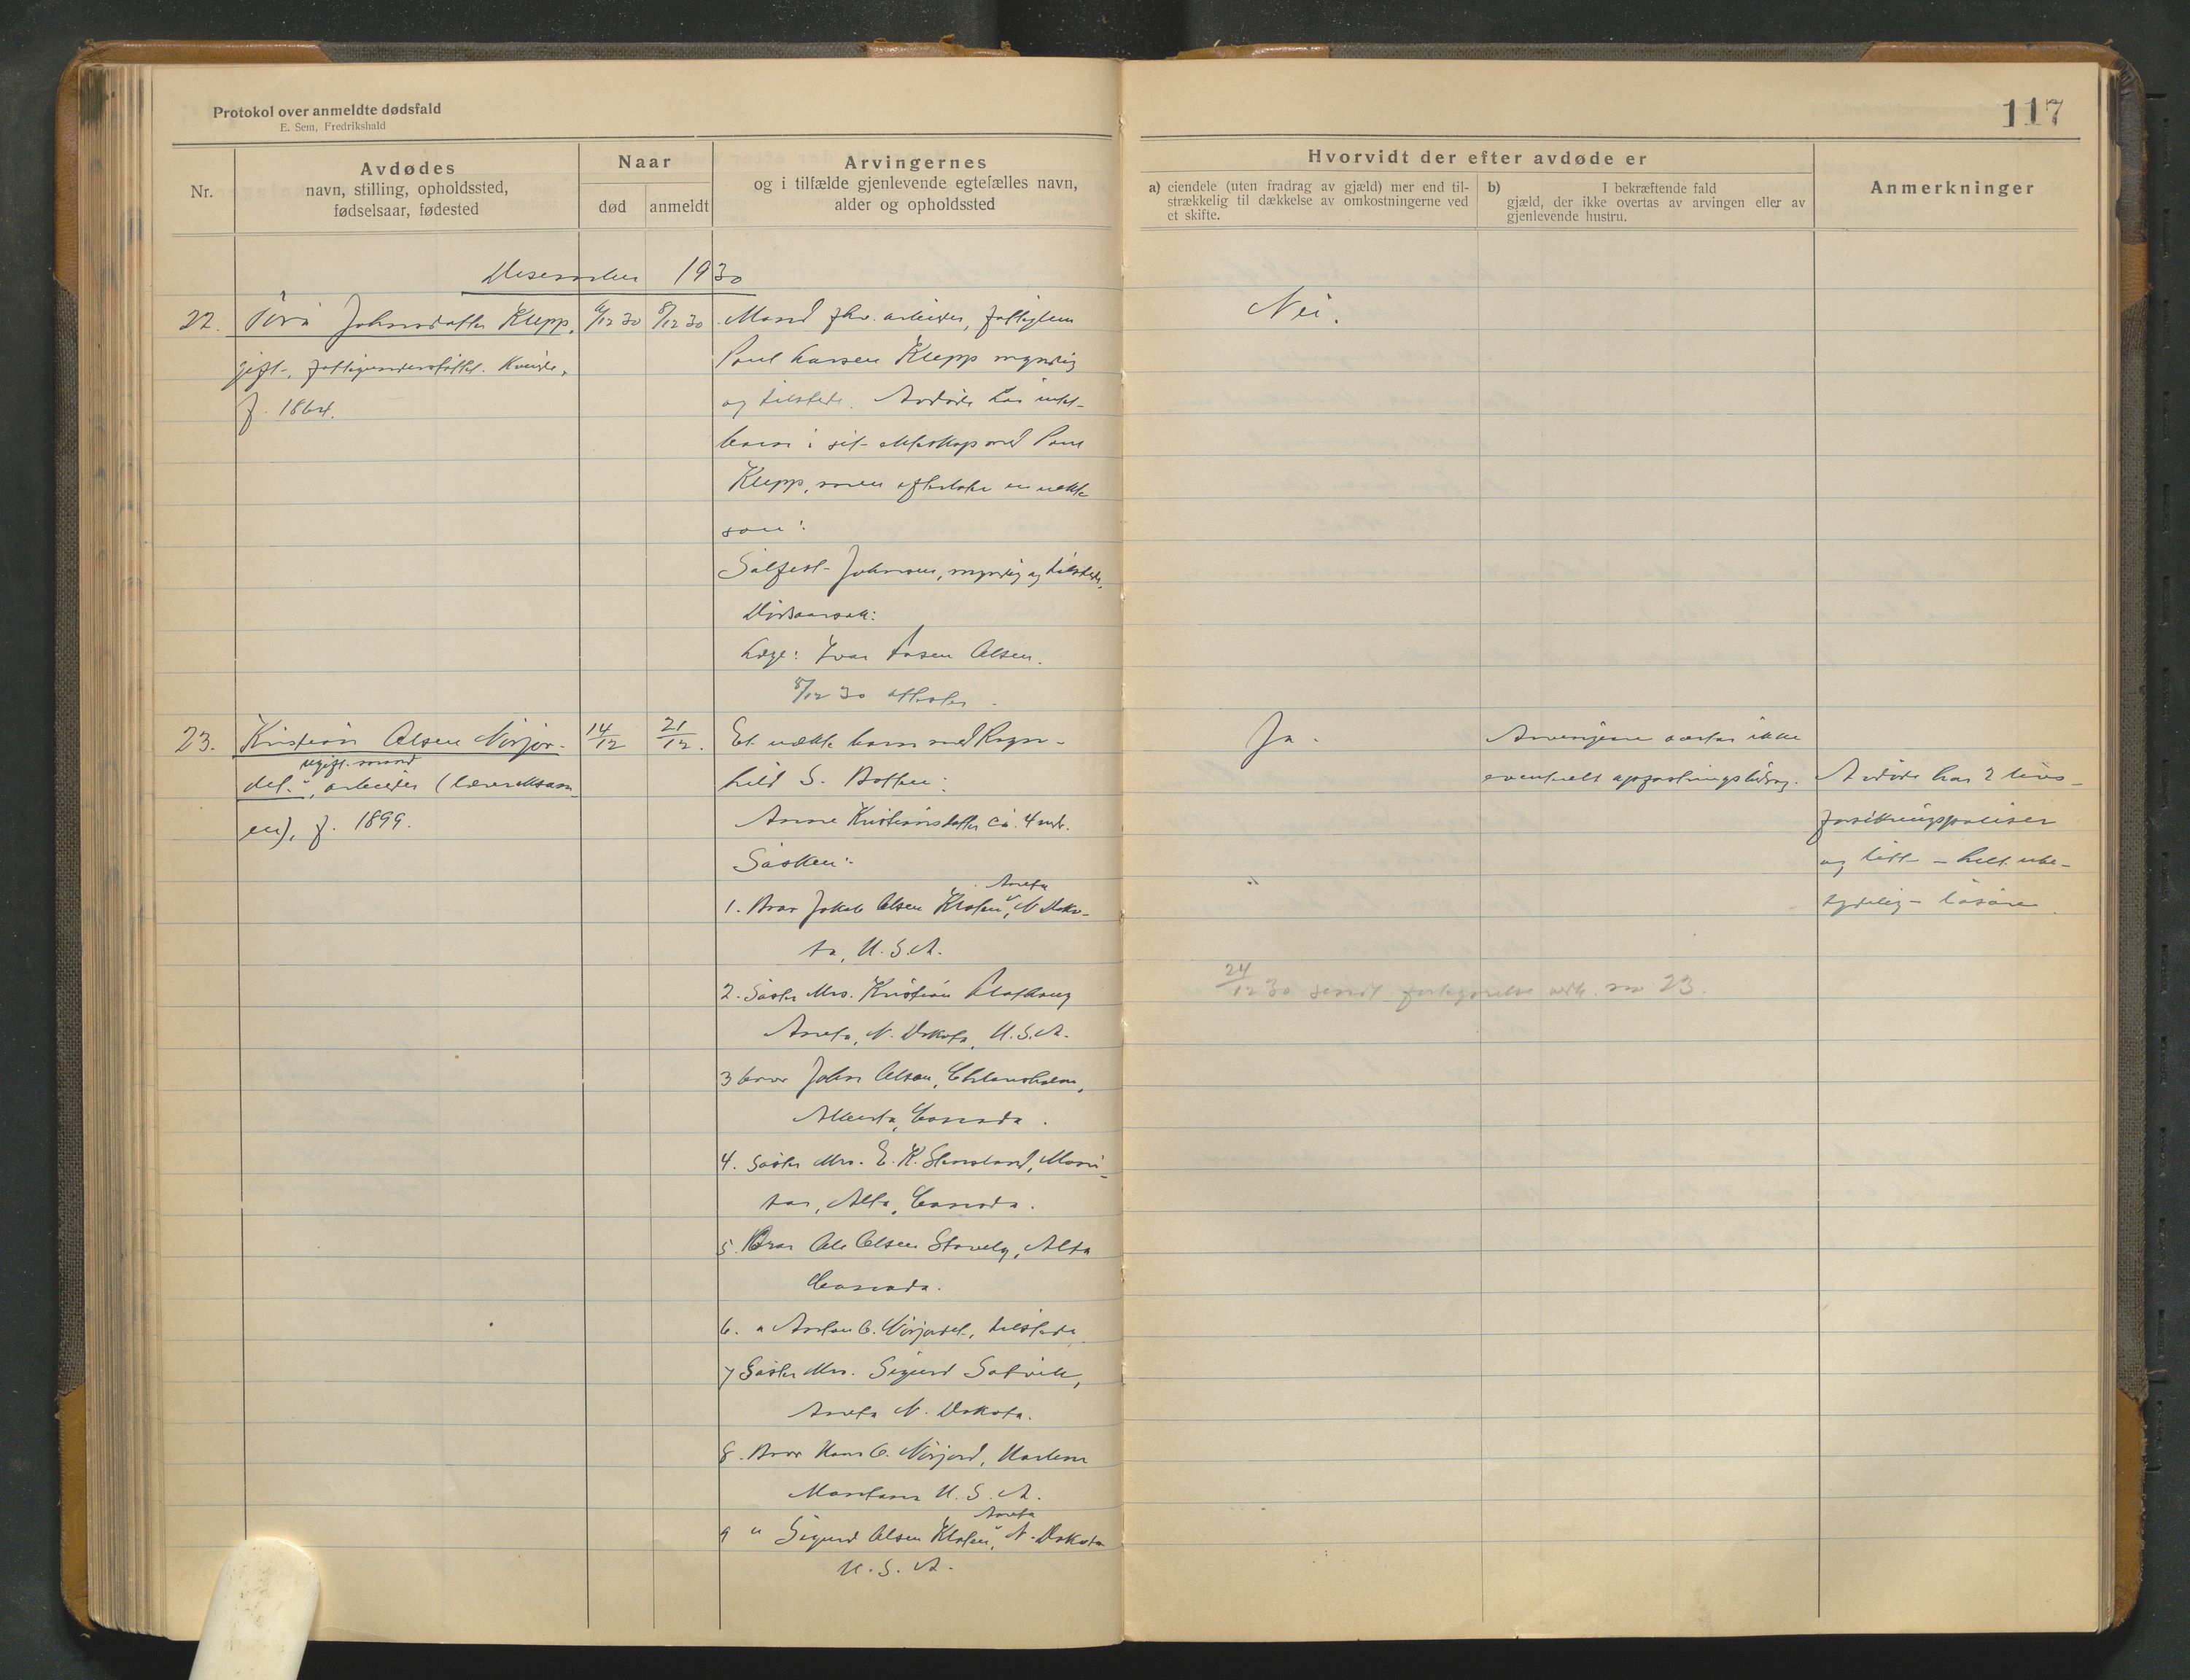 Protokol over anmeldte dødsfald
E. Sem, Fredrikshald
117
Nr.
Avdødes
navn, stilling, opholdssted,
fødselsaar, fødested
Naar
død
anmeldt
Arvingernes
og i tilfælde gjenlevende egtefælles navn,
alder og opholdssted
Hvorvidt der efter avdøde er
a) eiendele (uten fradrag av gjæld) mer end til-
strækkelig til dækkelse av omkostningerne ved
et skifte.
b) I bekræftende fald
gjæld, der ikke overtas av arvingen eller av
gjenlevende hustru.
Anmerkninger
Desember 1930
22. Johnsdatter Klepp, 6/12 30 8/12 30 Mand fhv. arbeider, fattiglem
gift, fattigunderstøttet. Kvinde,
f. 1864.
Paul Larsen Klepp myndig
og tilstede. Avdøde har intet
barn i sit ekteskap med Paul
Klepp, men efterlater en uekte
sønn:
Salfest Johnsen, myndig og tilstede.
Dødsaarsak:
Læge: Ivar Aasen Olsen.
8/12 30 attester
Nei.
23. Kristian Olsen Nörjor- 14/12 21/12. Et uekte barn med Ragn-
ugift mand
det, arbeider (lærereksam-
en), f. 1899.
hild S. Botten:
Anne Kristiansdatter ca. 4 mdr.
Søsken:
Aneta
1. Bror Jakob Olsen Kloften, N Dako-
ta, U.S.A.
2. Søster Mrs. Kristian
Aneta, N. Dakota, U.S.A.
3 bror John Olsen,
Alberta, Canada.
4. Søster Mrs. E. K. Stensland, Mani-
tar, Alta, Canada.
5. Bror Ole Olsen Stavely, Alta
Canada.
6. " Anton O. Nörjordet, tilstede
7 Søster Mrs. Sigurd Satvik,
Aneta N. Dakota.
8. Bror Hans O. Nörjord, Harlem
Montana U.S.A.
Aneta
9 " Sigurd Olsen Kloften, N. Dakota
U.S.A.
Ja.
Arvingerne overtar ikke
eventuelt opfostringsbidrag.
Avdøde har 2 livs-
forsikringspoliser
og litt – helt ube-
tydelig – løsøre.
24/12 30 sendt forlegnelse vedk. no 23.